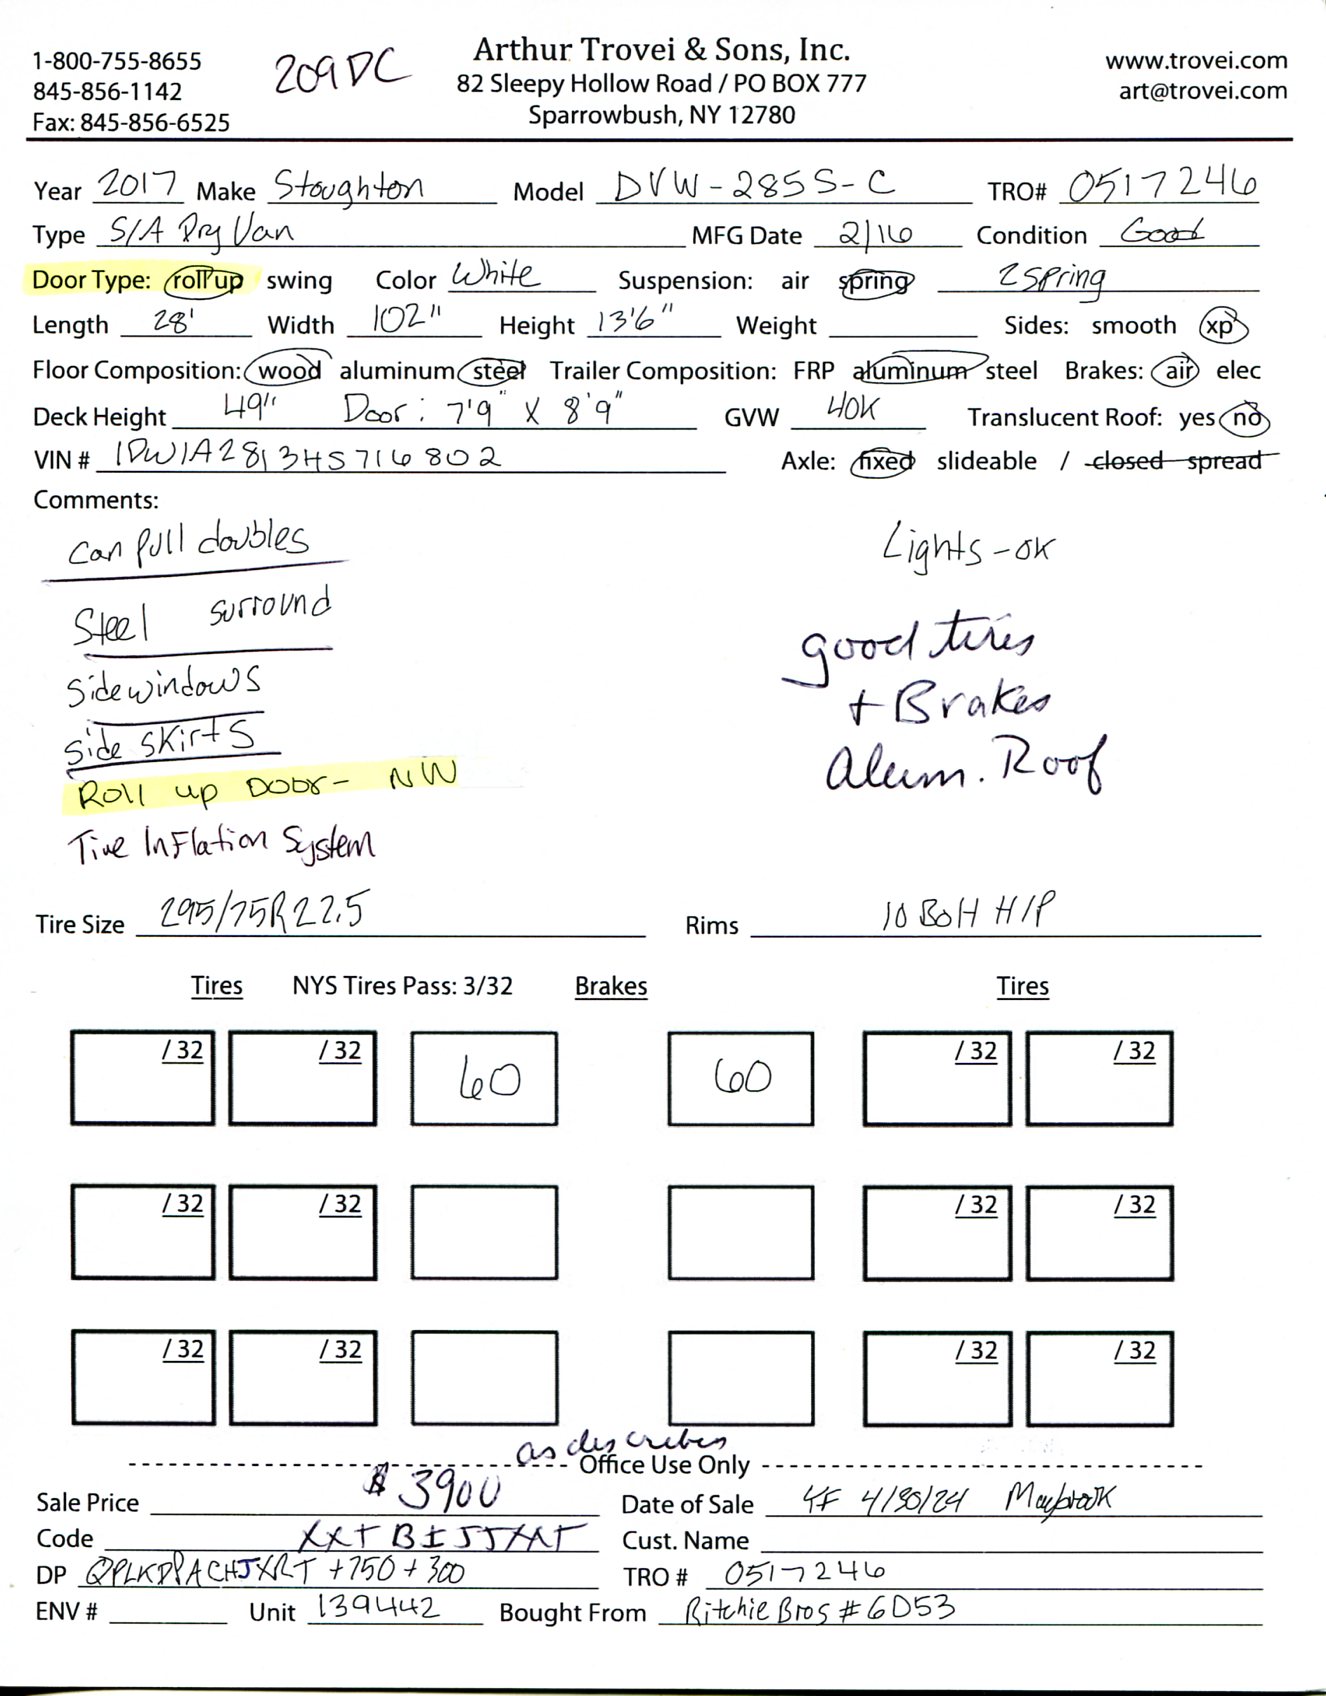 1-800-755-8655
845-856-1142
Fax: 845-856-6525
209DC
Arthur Trovei & Sons, Inc.
82 Sleepy Hollow Road / PO BOX 777
Sparrowbush, NY 12780
www.trovei.com
art@trovei.com
Year 2017 Make Stoughton Model DVW-285S-C TRO# 0517246
Type S/A Dry Van MFG Date 2/16 Condition Good
Door Type: roll up swing Color White Suspension: air spring 2 Spring
Length 28' Width 102" Height 13'6" Weight Sides: smooth xp
Floor Composition: wood aluminum steel Trailer Composition: FRP aluminum steel Brakes: air elec
Deck Height 49" Door: 7'9" X 8'9" GVW 40K Translucent Roof: yes no
VIN # 1DW1A2813HS716802 Axle: fixed slideable / closed spread
Comments:
can pull doubles
Lights - ok
Steel surround
good tires
side windows
+ Brakes
side skirts
Alum. Roof
Roll up Door - NW
Tire Inflation System
Tire Size 295/75R22.5 Rims 10 Bolt H/P
Tires NYS Tires Pass: 3/32 Brakes Tires
/ 32 / 32 60 60 / 32 / 32
/ 32 / 32 / 32 / 32
/ 32 / 32 / 32 / 32
as describes
Office Use Only
Sale Price $3900 Date of Sale 4/30/24 Maybrook
Code Cust. Name
DP +750+300 TRO # 0517246
ENV # Unit 139442 Bought From Ritchie Bros #6D53